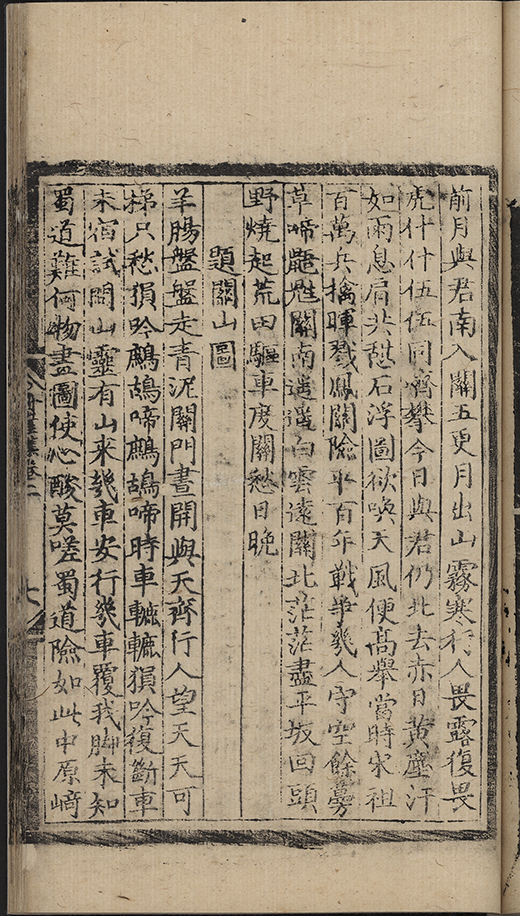 前月與君南入關五更月出山霧寒行人畏露復畏
虎什什伍伍同嚌攀今日與君仍北去赤日黃塵汗
如雨息肩共憩石浮圖欲喚天風便高舉當時宋祖
百萬兵擒暉戮鳳關險平百年戰爭幾人守空餘蔓
草啼鼯鼪關南遥遥白雲遠關北茫茫盡平坂回頭
野燒起荒田驅車度關愁日晚
題關山圖
羊腸盤盤走青泥關門晝開與天齊行人望天天可
梯只愁猿吟鷓鴣啼鷓鴣啼時車轆轆猿吟復斷車
未宿試問山靈有山來幾車安行幾車覆我脚未知
蜀道難何物畫圖使心酸莫嗟蜀道險如此中原﨑
集卷二 七